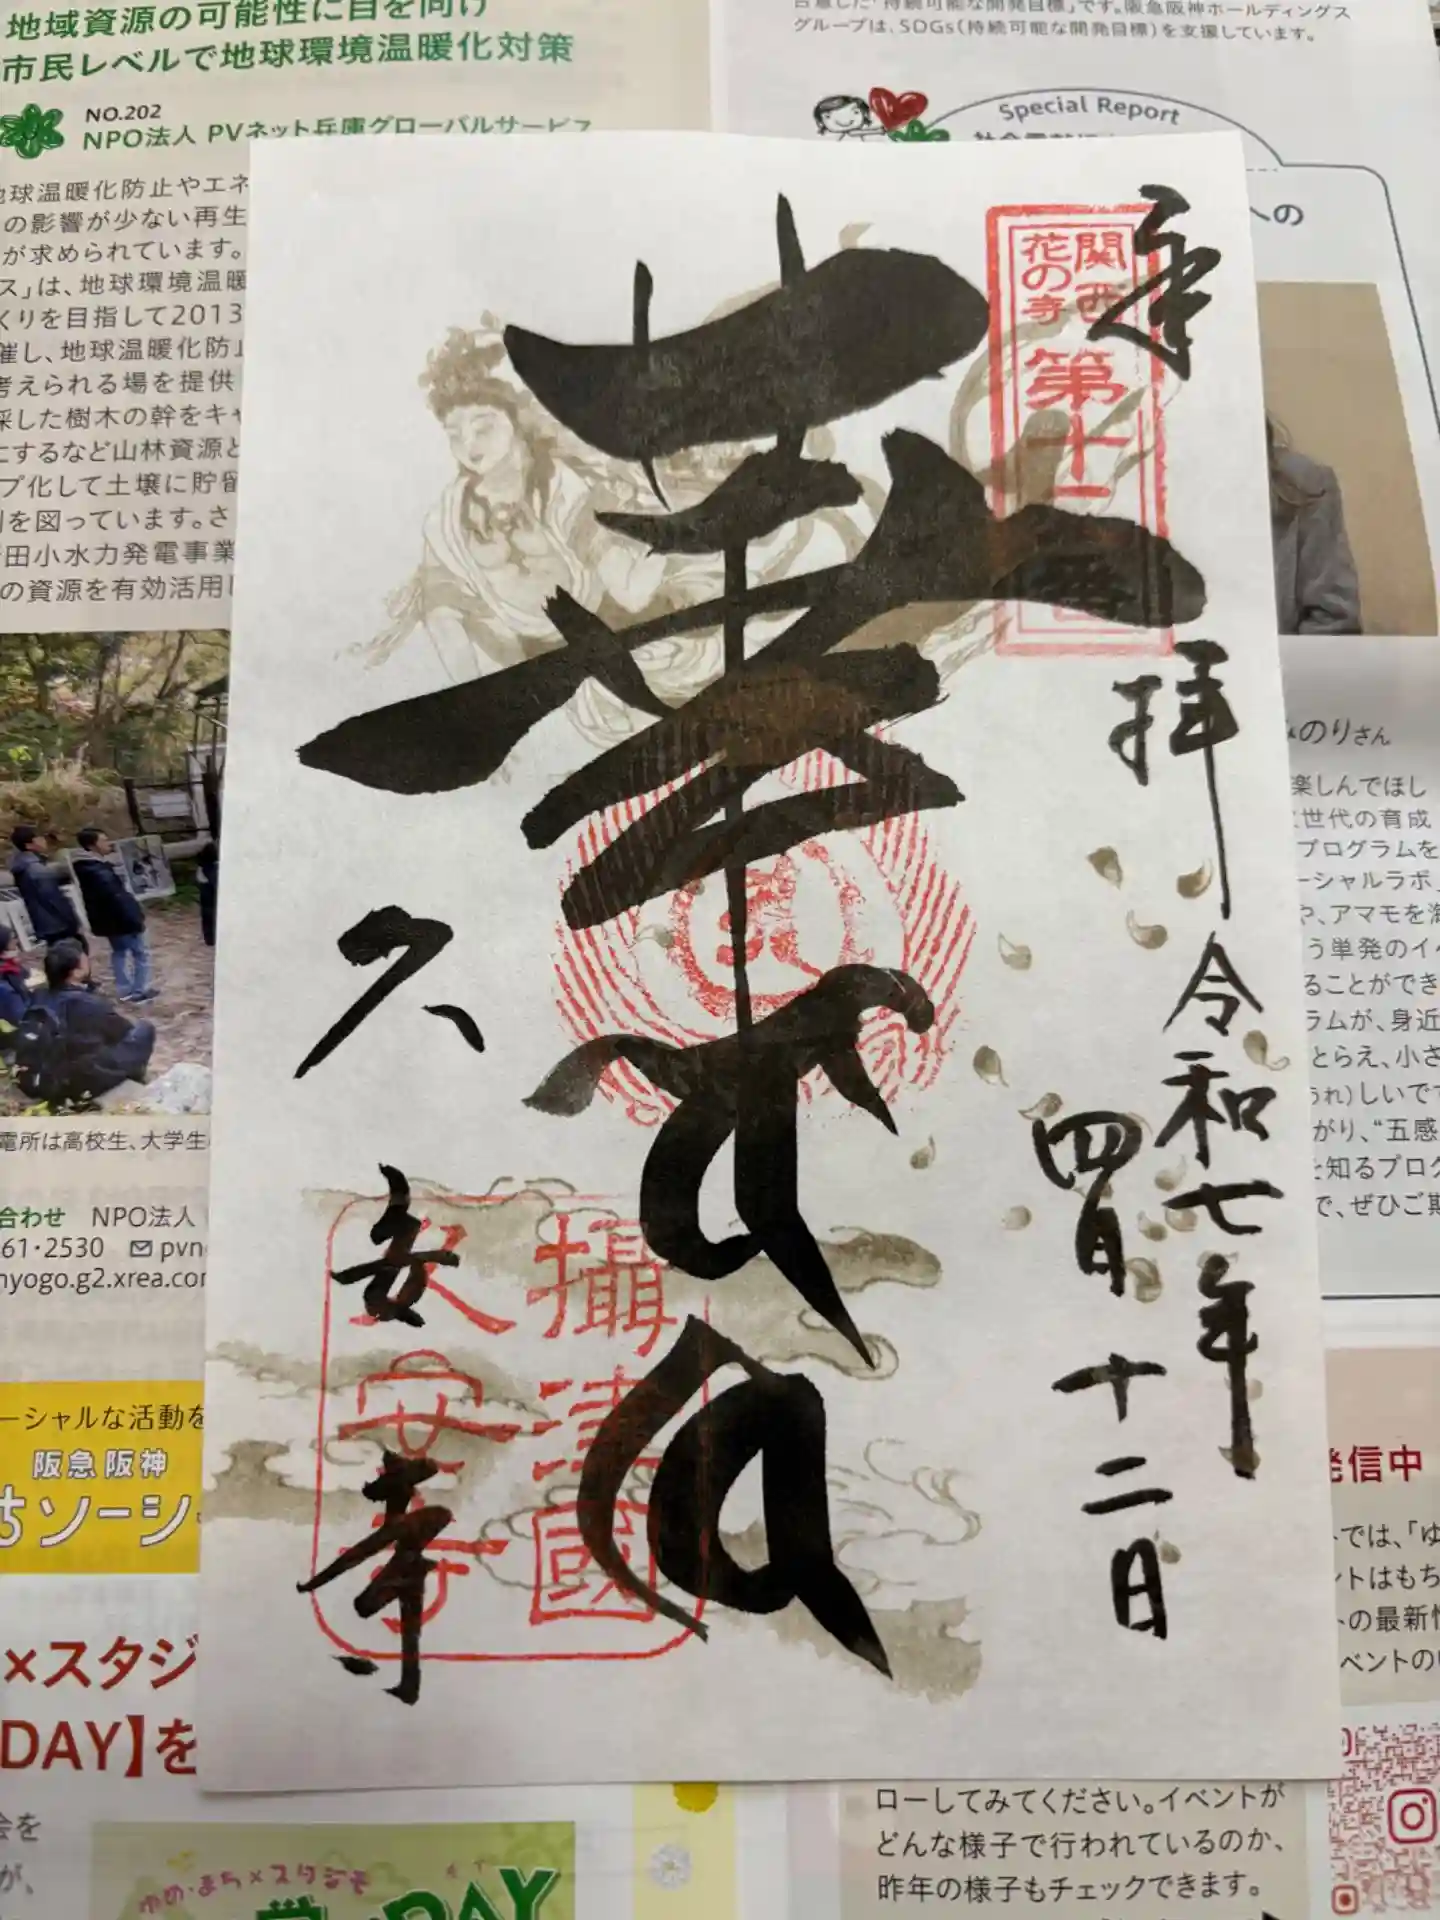 地域資源の可能性に目を向け
市民レベルで地球環境温暖化対策
NO.202
NPO法人 PVネット兵庫グローバルサービス
地球温暖化防止やエネ
の影響が少ない再生
が求められています。
ス」は、地球環境温暖
くりを目指して2013
催し、地球温暖化防止
考えられる場を提供
採した樹木の幹をキャ
にするなど山林資源と
プ化して土壌に貯留
を図っています。さ
田小水力発電事業
の資源を有効活用し
電所は高校生、大学生
合わせ NPO法人
61・2530 pvn
nyogo.g2.xrea.com
ーシャルな活動を
阪急阪神
ソーシ
×スタジ
DAY】を
会を
が、
ゆめ・まち×スタジモ
DAY
合意した「持続可能な開発目標」です。阪急阪神ホールディングス
グループは、SDGs(持続可能な開発目標)を支援しています。
Special Report
への
奉拝
令和七年
四月十二日
関西
花の寺
第十二番
久安寺
攝津國
久安寺
のりさん
楽しんでほし
世代の育成
プログラムを
ーシャルラボ」
や、アマモを海
う単発のイベ
ることができ
ラムが、身近
とらえ、小さ
しいです
がり、“五感
を知るプログ
で、ぜひご期
発信中
では、「ゆ
ントはもち
の最新情
ベントの
ローしてみてください。イベントが
どんな様子で行われているのか、
昨年の様子もチェックできます。